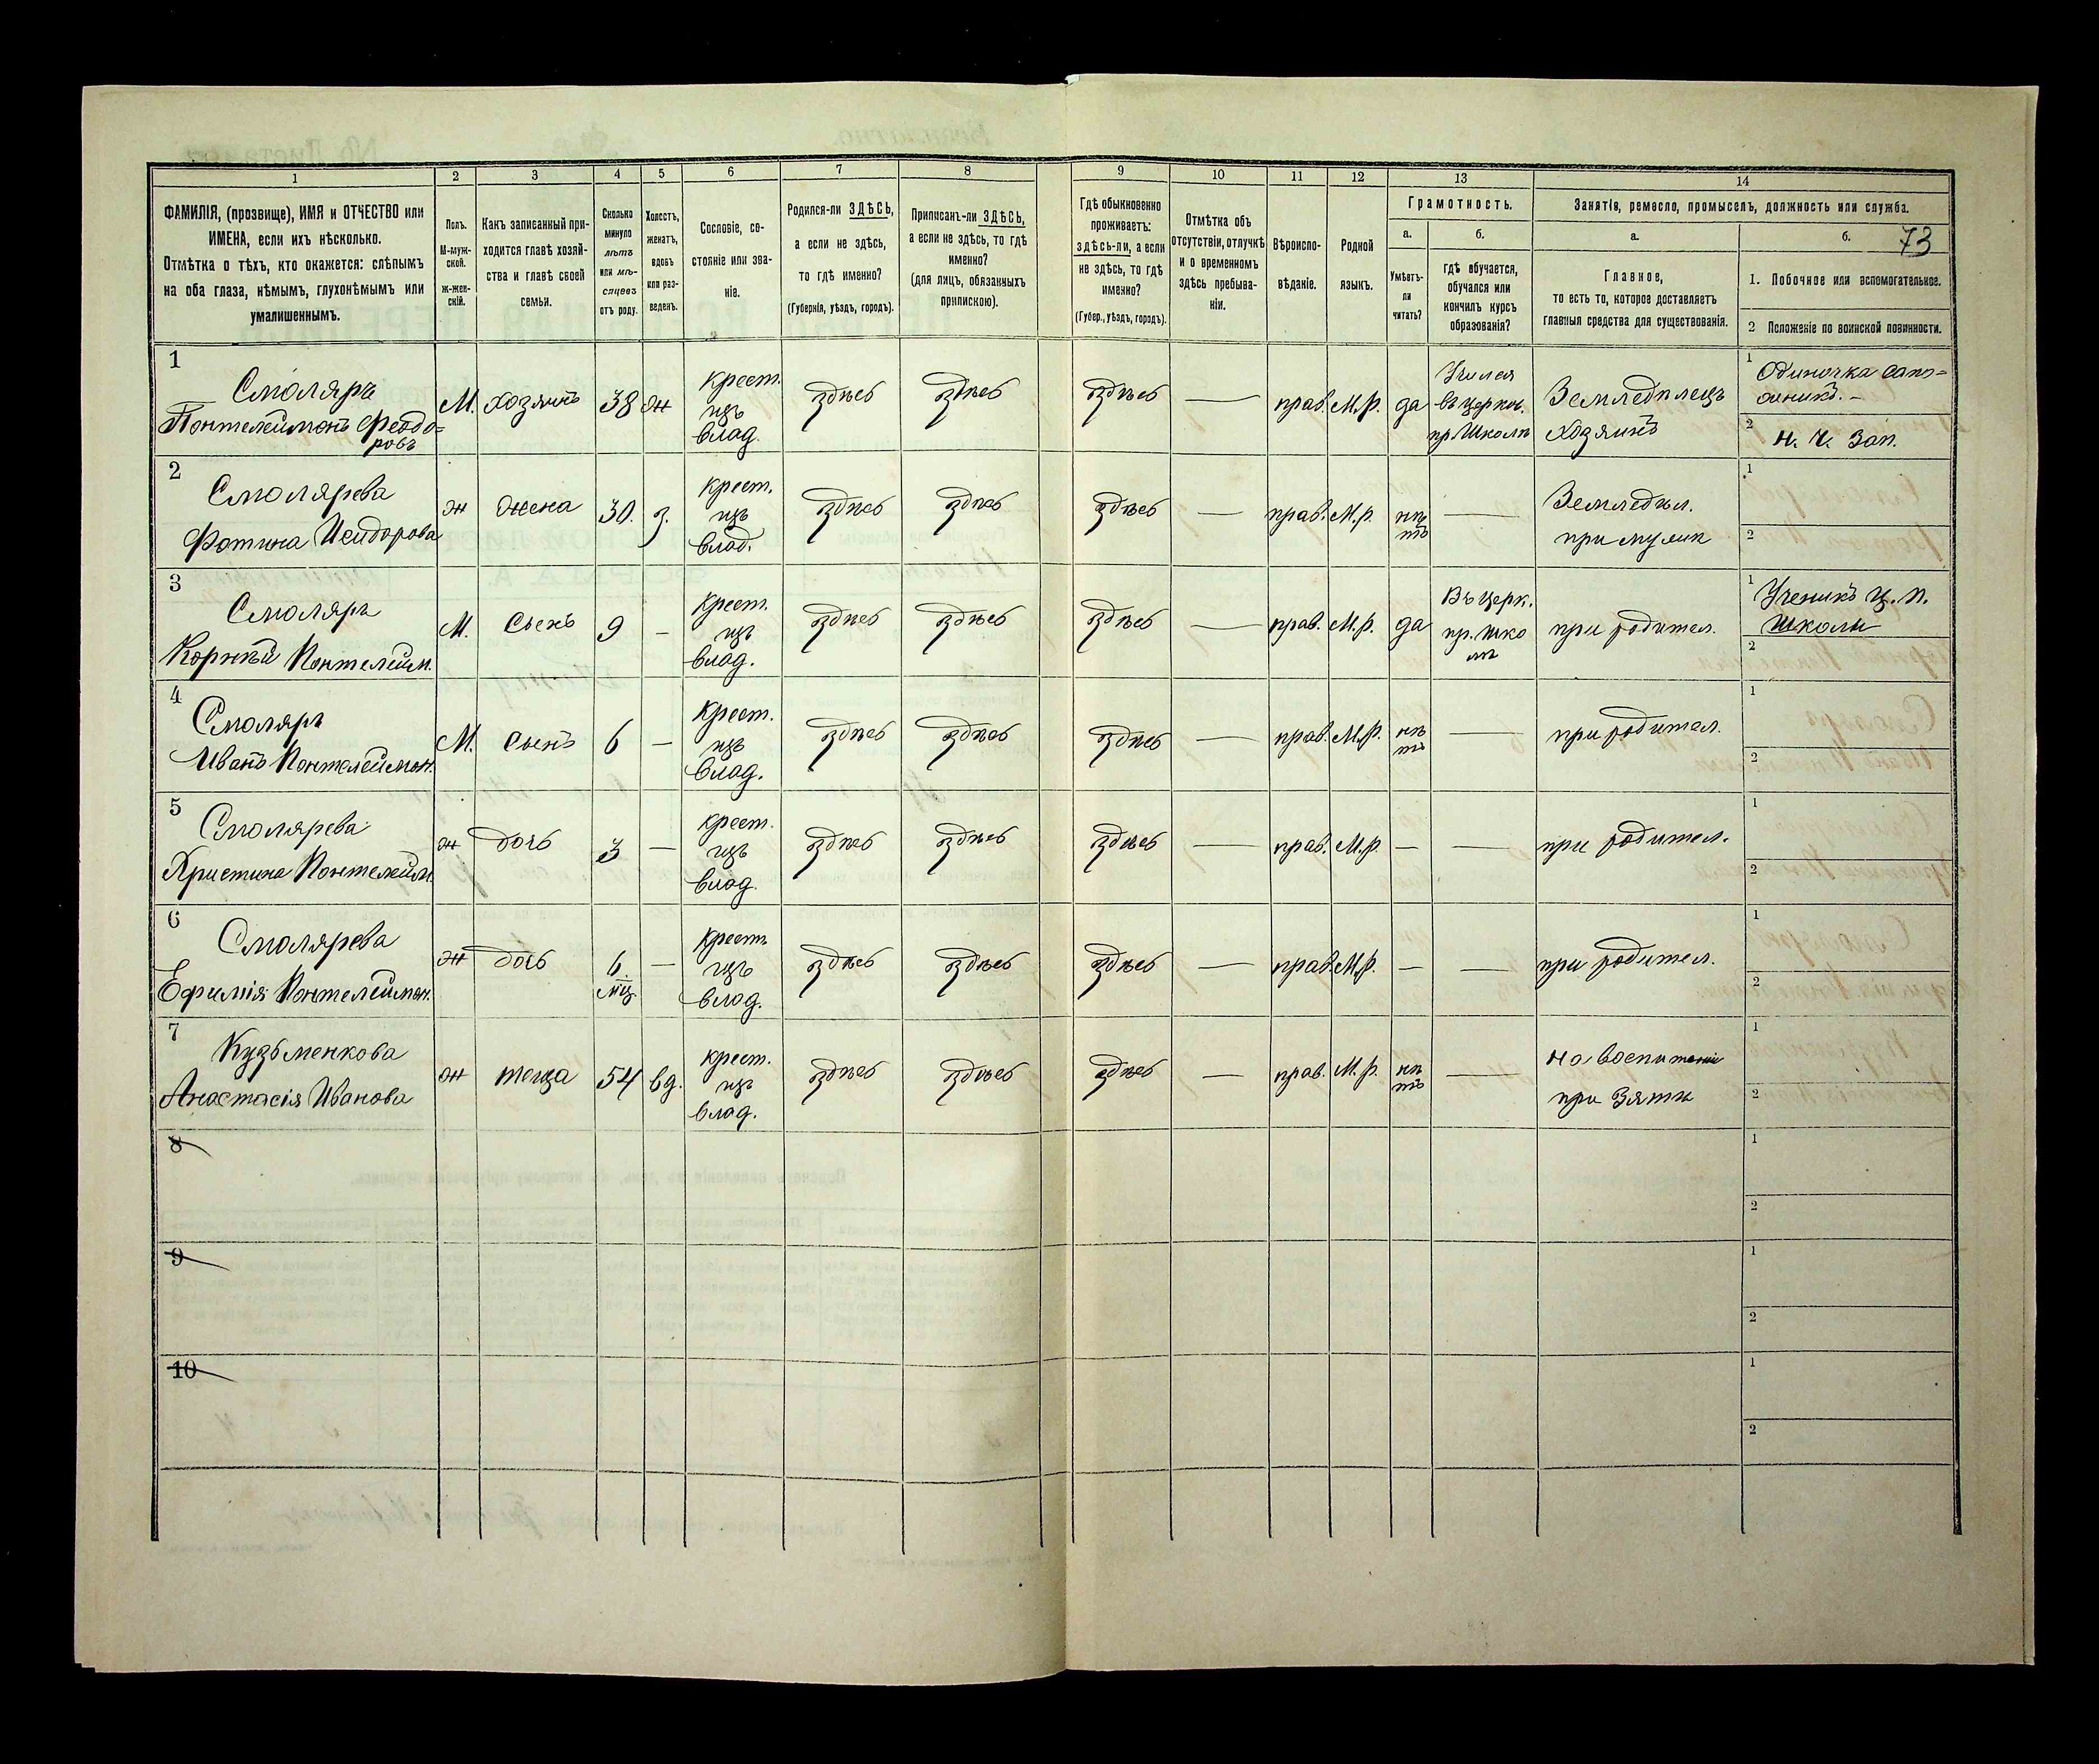 73
1 2 3 4 5 6 7 8 9 10 11 12 13 14
ФАМИЛІЯ, (прозвище), ИМЯ и ОТЧЕСТВО или
ИМЕНА, если ихъ нѣсколько.
Отмѣтка о тѣхъ, кто окажется: слѣпымъ
на оба глаза, нѣмымъ, глухонѣмымъ или
умалишеннымъ.
Полъ.
М-муж-
ской.
Ж-жен-
скій.
Какъ записанный при-
ходится главѣ хозяй-
ства и главѣ своей
семьи.
Сколько
минуло
лѣтъ
или мѣ-
сяцевъ
отъ роду.
Холостъ,
женатъ,
вдовъ
или раз-
веденъ.
Сословіе, со-
стояніе или зва-
ніе.
Родился-ли ЗДѢСЬ,
а если не здѣсь,
то гдѣ именно?
(Губернія, уѣздъ, городъ).
Приписанъ-ли ЗДѢСЬ,
а если не здѣсь, то гдѣ
именно?
(для лицъ, обязанныхъ
припискою).
Гдѣ обыкновенно
проживаетъ:
здѣсь-ли, а если
не здѣсь, то гдѣ
именно?
(Губер., уѣздъ, городъ).
Отмѣтка объ
отсутствіи, отлучкѣ
и о временномъ
здѣсь пребыва-
ніи.
Вѣроиспо-
вѣданіе.
Родной
языкъ.
Грамотность.
а.
Умѣетъ-
ли
читать?
б.
Гдѣ обучается,
обучался или
кончилъ курсъ
образованія?
Занятіе, ремесло, промыселъ, должность или служба.
а.
Главное,
то есть то, которое доставляетъ
главныя средства для существованія.
б.
1. Побочное или вспомогательное.
2 Положеніе по воинской повинности.
1
Смоляръ
Пантелеимонъ Феодо=
ровъ
М. хозяинъ 38 ж
крест.
изъ
влад.
здѣсь здѣсь здѣсь — прав. М.р. да
Учился
въ церков.
пр. Школѣ
Земледѣлецъ
Хозяинъ
1 Одиночка сапо=
жникъ. –
2 Н. Ч. Зап.
2
Смолярева
Фотина Исидорова
ж жена 30. з.
крест.
изъ
влад.
здѣсь здѣсь здѣсь — прав. М.р.
нѣ
тъ
—
Земледѣл.
при мужѣ
1
2
3
Смоляръ
Корнѣй Пантелейм.
М. Сынъ 9 –
крест.
изъ
влад.
здѣсь здѣсь здѣсь — прав. М.р. да
Въ церк.
пр. шко
лѣ
при родител.
1 Ученикъ ц. п.
школы
2
4
Смоляръ
Иванъ Пантелеймон.
М. Сынъ 6 —
крест.
изъ
влад.
здѣсь здѣсь здѣсь — прав. М.р.
нѣ
тъ
—
при родител.
1
2
5
Смолярева
Христина Пантелейм.
ж дочь 3 —
крест.
изъ
влад.
здѣсь здѣсь здѣсь — прав. М.р. – —
при родител.
1
2
6
Смолярева
Ефимія Пантелеймон.
ж дочь
6.
мц.
—
крест.
изъ
влад.
здѣсь здѣсь здѣсь — прав. М.р. – —
при родител.
1
2
7
Кузьменкова
Анастасія Иванова
ж теща 54 вд.
крест.
изъ
влад.
здѣсь здѣсь здѣсь — прав. М.р.
нѣ
тъ
—
на воспитаніи
при Зятѣ
1
2
8
1
2
9
1
2
10
1
2